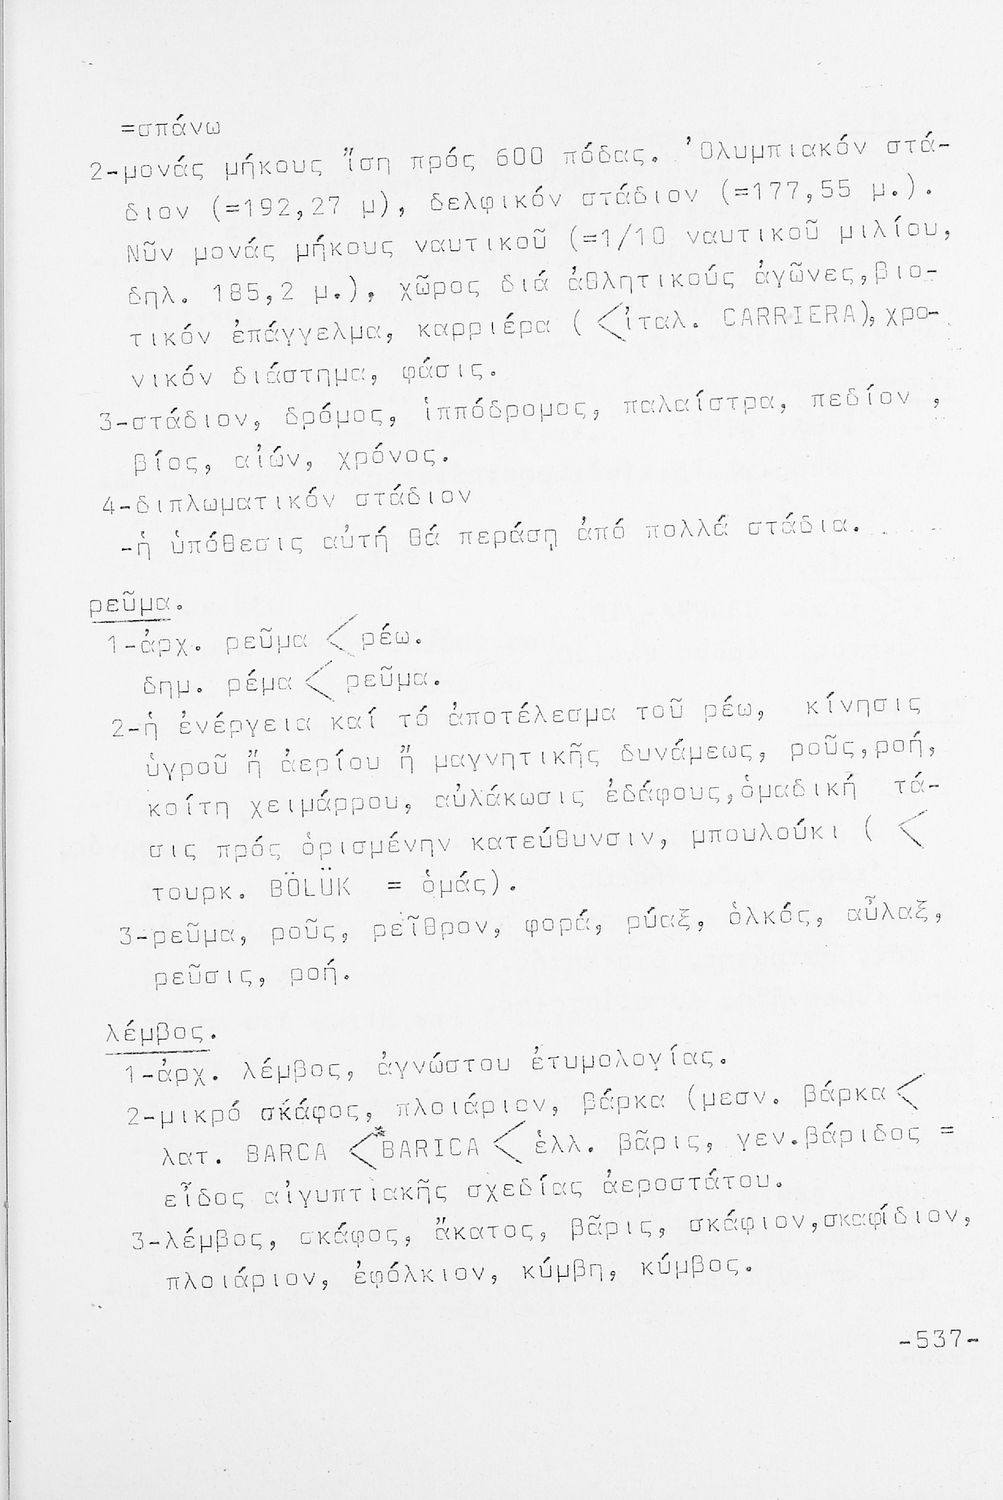 =σπάνω
2-μονάς μήκους ἴση πρός 600 πόδας. Ὀλυμπιακόν στά-
διον (=192,27 μ), δελφικόν στάδιον (=177,55 μ.).
Νῦν μονάς μήκους ναυτικοῦ (=1/10 ναυτικοῦ μιλίου,
δηλ. 185,2 μ.), χῶρος διά ἀθλητικούς ἀγῶνες,βιο-
τικόν ἐπάγγελμα, καρριέρα ( <ἰταλ. CARRIERA), χρο-
νικόν διάστημα, φάσις.
3-στάδιον, δρόμος, ἱππόδρομος, παλαίστρα, πεδίον ,
βίος, αἰών, χρόνος.
4-διπλωματικόν στάδιον
-ἡ ὑπόθεσις αὐτή θά περάση ἀπό πολλά στάδια.
ρεῦμα.
1-ἀρχ. ρεῦμα < ρέω.
δημ. ρέμα < ρεῦμα.
2-ἡ ἐνέργεια καί τό ἀποτέλεσμα τοῦ ρέω, κίνησις
ὑγροῦ ἤ ἀερίου ἤ μαγνητικῆς δυνάμεως, ροῦς,ροή,
κοίτη χειμάρρου, αὐλάκωσις ἐδάφους,ὁμαδική τά-
σις πρός ὁρισμένην κατεύθυνσιν, μπουλούκι ( <
τουρκ. BÖLÜK = ὁμάς).
3-ρεῦμα, ροῦς, ρεῖθρον, φορά, ρύαξ, ὁλκός, αὖλαξ,
ρεῦσις, ροή.
λέμβος.
1-ἀρχ. λέμβος, ἀγνώστου ἐτυμολογίας.
2-μικρό σκάφος, πλοιάριον, βάρκα (μεσν. βάρκα <
λατ. BARCA <*BARICA < ἑλλ. βᾶρις, γεν.βάριδος =
εἶδος αἰγυπτιακῆς σχεδίας ἀεροστάτου.
3-λέμβος, σκάφος, ἄκατος, βᾶρις, σκάφιον,σκαφίδιον,
πλοιάριον, ἐφόλκιον, κύμβη, κύμβος.
-537-